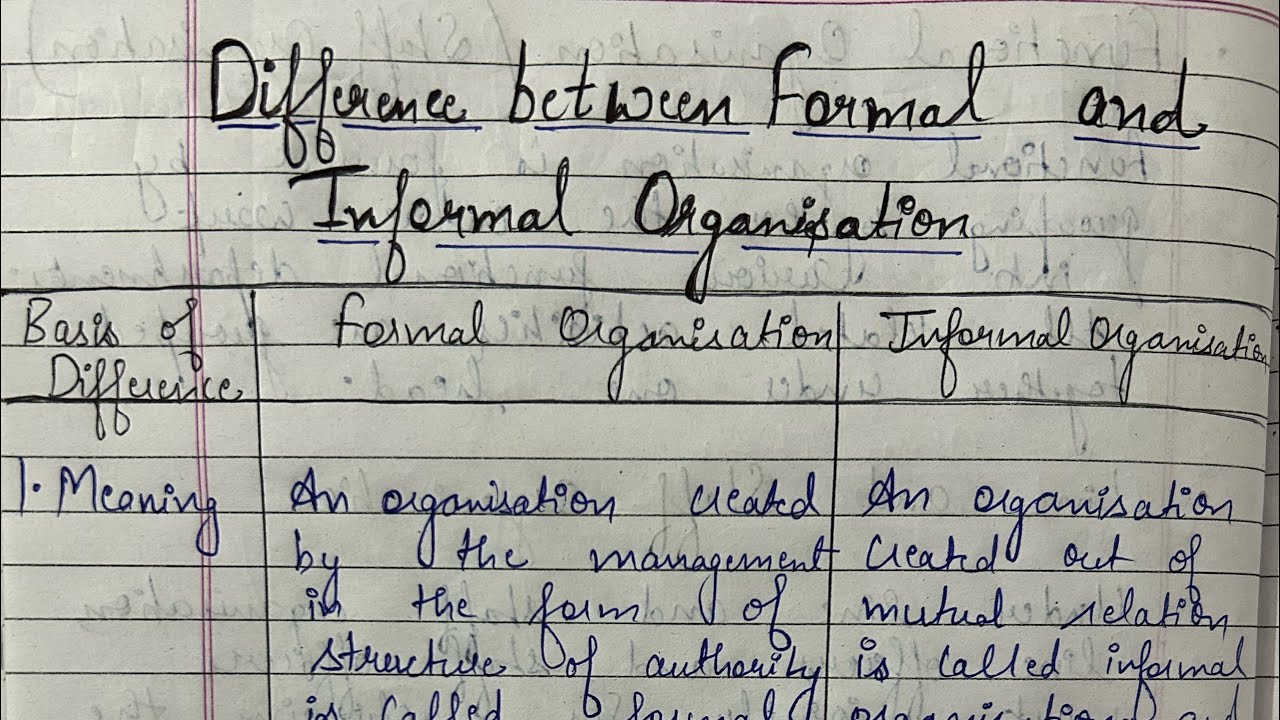 Difference between Formal and
Informal Organisation
Basis of Difference
Formal Organisation
Informal Organisation
1. Meaning
An organisation created
by the management
in the form of
structure of authority
is called formal
An organisation
created out of
mutual relation
is called informal
organisation and